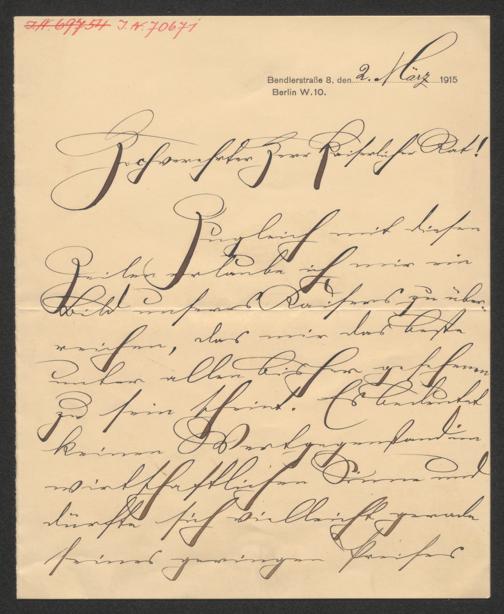 I.N. 69754 I.N. 70671
Bendlerstraße 8, den 2. März 1915
Berlin W. 10.
Hochverehrter Herr Kaiserlicher Rat!
Zugleich mit diesen
Zeilen erlaube ich mir ein
Bild unseres Kaisers zu über-
reichen, das mir das beste
unter allen bisher gesehenen
zu sein scheint. Es bedeutet
keinen Wertgegenstand im
wirtschaftlichen Sinne und
dürfte sich vielleicht gerade
seines geringen Preises